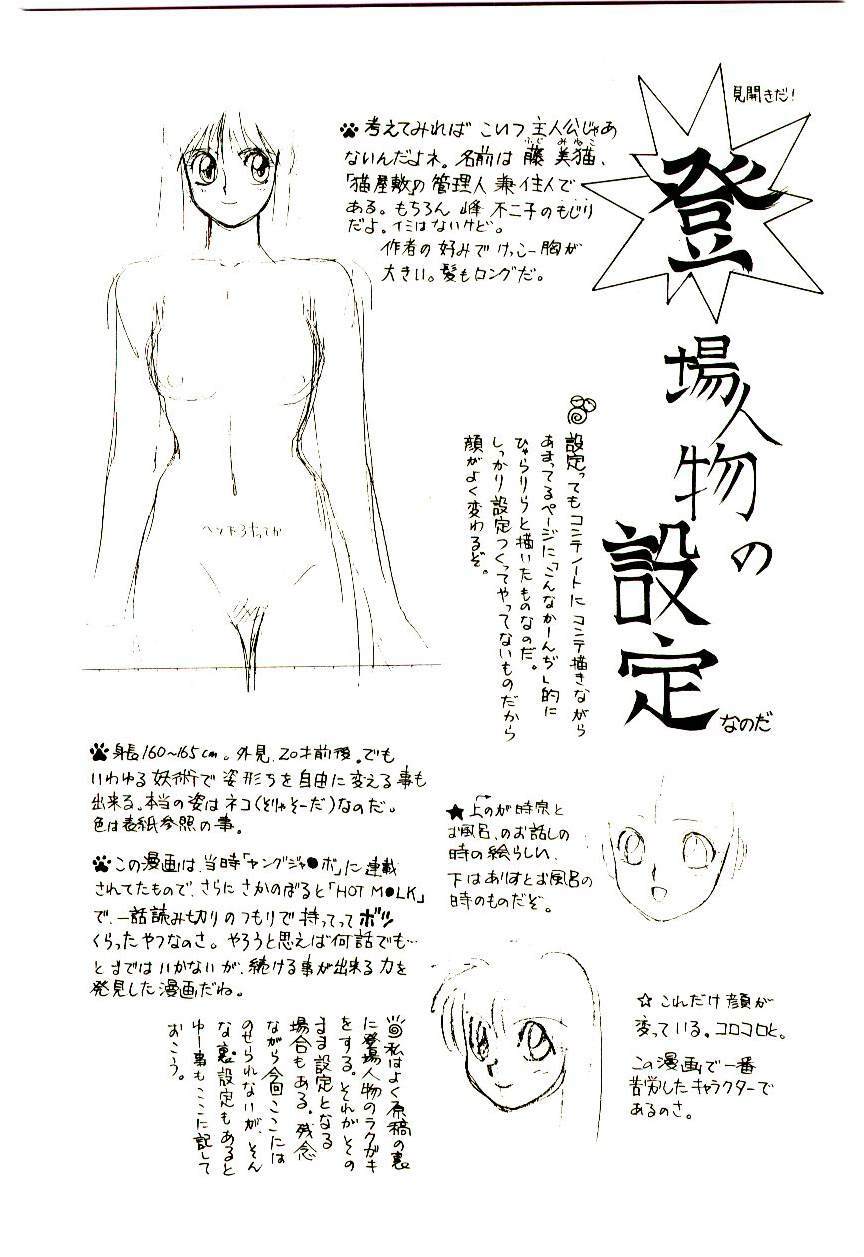 見開きだ!
登
場人物の
設定
なのだ
考えてみれば こいつ 主人公じゃあ
ないんだよネ。名前は 藤 美猫、
ふじ みねこ
「猫屋敷」の 管理人 兼 住人で
ある。もちろん 峰 不二子のもじり
だよ。イミはないけど。
作者の 好みで けっこー 胸が
大きい。髪もロングだ。
設定ってもコンテノートに コンテ描きながら
あまってるページに「こんなかーんぢ」的に
ひゃらりらと描いたものなのだ。
しっかり設定つくってやってないものだから
顔がよく変わるぞ。
身長160~165cm。外見、20才前後。でも
いわゆる妖術で 姿形ちを自由に変える事も
出来る。本当の姿はネコ(そりゃそーだ)なのだ。
色は表紙参照の事。
この漫画は、当時「ヤングジャ●ボ」に連載
されてたもので、さらに さかのぼると「HOT M●LK」
で、一話読み切りのつもりで 持ってって ボツ
くらったやつなのさ。やろうと思えば何話でも…
とまではいかないが、続ける事が出来る力を
発見した漫画だね。
★上のが時宗と
お風呂、のお話しの
時の絵らしい、
下はありすとお風呂の
時のものだぞ。
☆ これだけ 顔が
変っている。コロコロと。
この漫画で一番
苦労したキャラクターで
あるのさ。
私はよく原稿の裏
に登場人物のラクガキ
をする。それがその
まま設定となる
場合もある。残念
ながら今回ここには
のせられないが、そん
な裏設定もあると
ゆー事もここに記して
おこう。